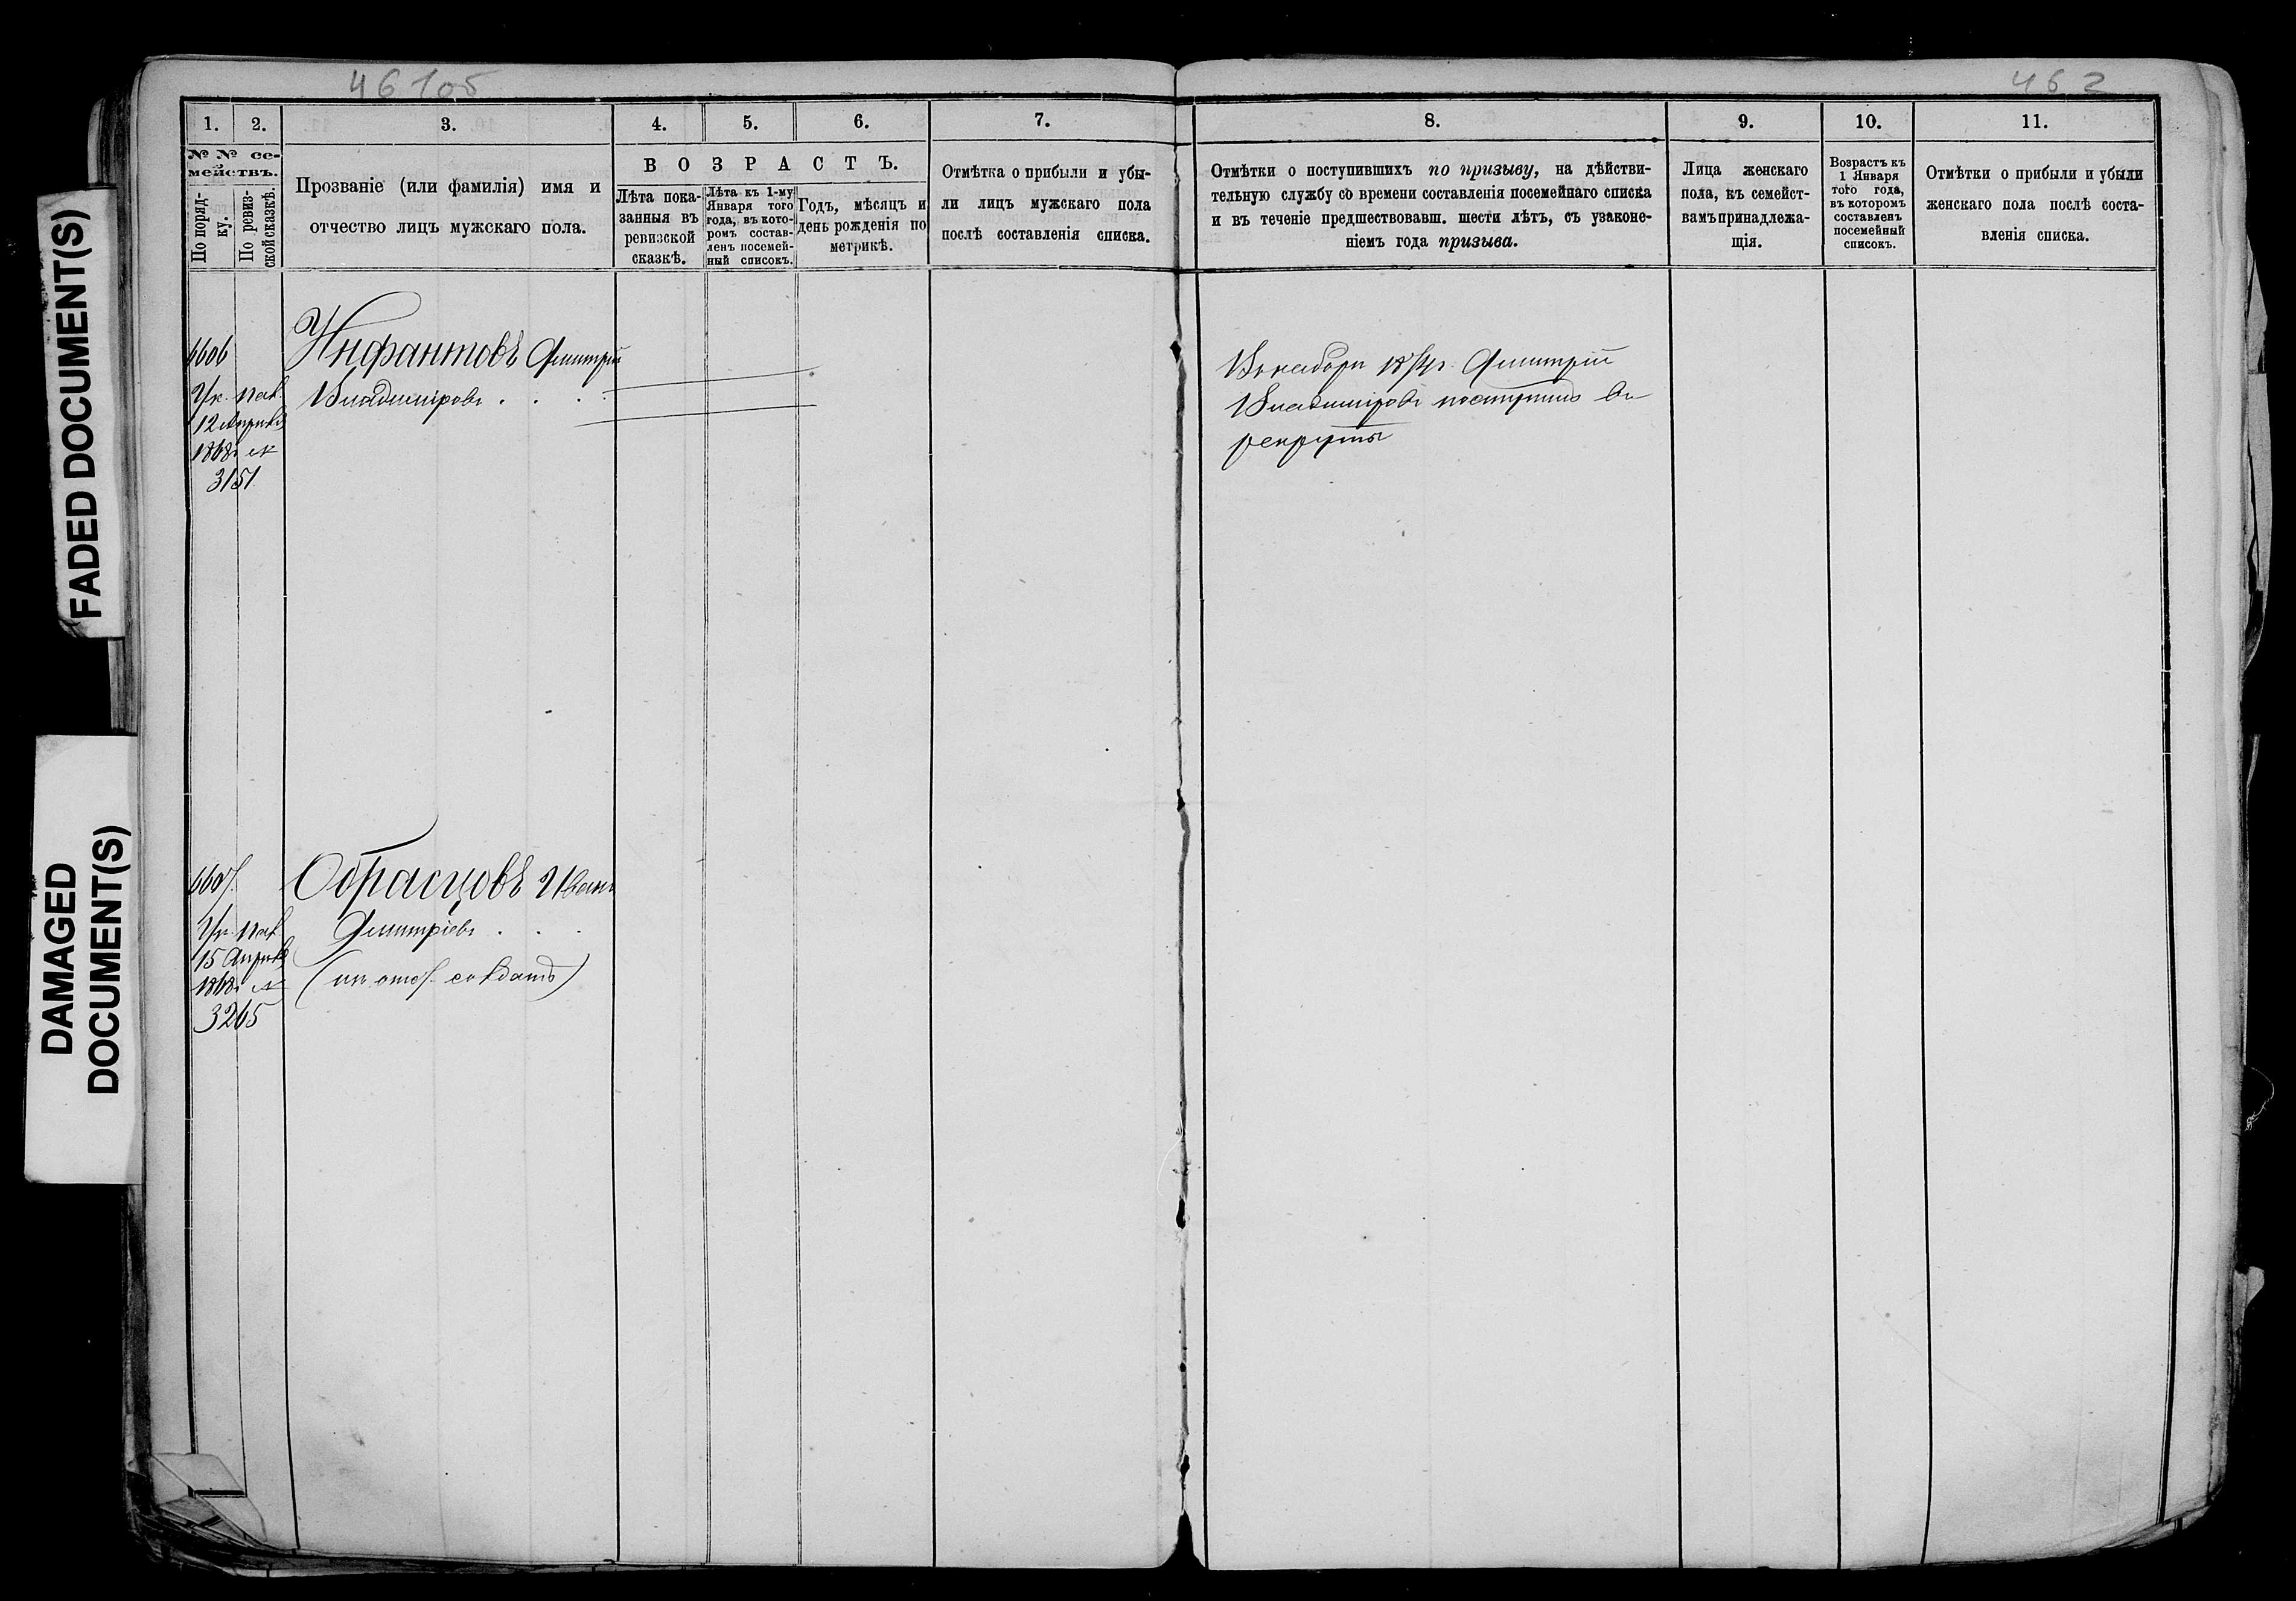 46105
462
FADED DOCUMENT(S)
DAMAGED
DOCUMENT(S)
1. 2. 3. 4. 5. 6. 7. 8. 9. 10. 11.
№ № се-
мействъ.
По поряд-
ку.
По ревиз-
ской сказкѣ.
Прозваніе (или фамилія) имя и
отчество лицъ мужскаго пола.
ВОЗРАСТЪ.
Лѣта пока-
занныя въ
ревизской
сказкѣ.
Лѣта къ 1-му
Января того
года, въ кото-
ромъ состав-
ленъ посемей-
ный списокъ.
Годъ, мѣсяцъ и
день рожденія по
метрикѣ.
Отмѣтка о прибыли и убы-
ли лицъ мужскаго пола
послѣ составленія списка.
Отмѣтки о поступившихъ по призыву, на дѣйстви-
тельную службу со времени составленія посемейнаго списка
и въ теченіе предшествовавш. шести лѣтъ, съ узаконе-
ніемъ года призыва.
Лица женскаго
пола, къ семейст-
вамъ принадлежа-
щія.
Возрастъ къ
1 Января
того года,
въ которомъ
составленъ
посемейный
списокъ.
Отмѣтки о прибыли и убыли
женскаго пола послѣ соста-
вленія списка.
4606
Ук. пал.
12 Апрѣля
1868г №
3151
Инфантовъ Дмитрій
Владиміровъ . . . .
Въ наборъ 1874г. Дмитрій
Владиміровъ поступилъ въ
рекруты
4607.
Ук. пал
15 Апрѣля
1868г №
3265
Образцовъ Иванъ
Дмитріевъ . . .
солдатъ)